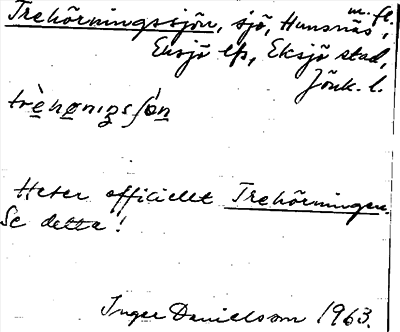 Trehörningssjön, sjö, Hunsnäs m. fl.,
Eksjö lfs, Eksjö stad,
Jönk. l.
Heter officiellt Trehörningen.
Se detta!
Inger Danielsson 1963.